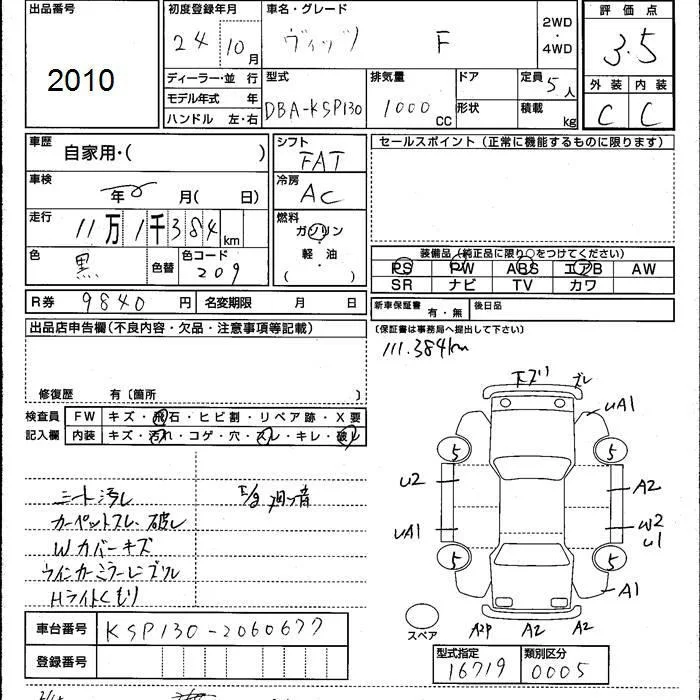 出品番号
2010
初度登録年月
24 10月
車名・グレード
ヴィッツ F
2WD
・
4WD
評価点
3.5
外装 内装
C C
ディーラー・並行
モデル年式 年
ハンドル 左・右
型式
DBA-KSP130
排気量
1000 CC
ドア
形状
定員 5人
積載 kg
車歴
自家用・( )
車検
年 月(日)
走行
11万1千384km
色
黒
色替
色コード
209
シフト
FAT
冷房
AC
燃料
ガソリン
・
軽・油
( )
セールスポイント(正常に機能するものに限ります)
装備品(純正品に限り○をつけてください)
PS PW ABS エアB AW
SR ナビ TV カワ
R券 9840円 名変期限 月 日
新車保証書 有・無 後日品
(保証書は事務局へ提出して下さい)
111.384km
出品店申告欄(不良内容・欠品・注意事項等記載)
修復歴 有〔箇所 〕
検査員
記入欄
FW キズ・飛石・ヒビ割・リペア跡・X要
内装 キズ・汚れ・コゲ・穴・スレ・キレ・破レ
シート汚レ
カーペットスレ・破レ
Wカバーキズ
ウインカーミラーレンズワレ
Hライトくもり
下ズリ ズレ
uA1
5 5
u2 A2
uA1 W2
u1
5 5
A1
スペア
A2P A2 A2
車台番号 KSP130-2060677
登録番号
型式指定 類別区分
16719 0005